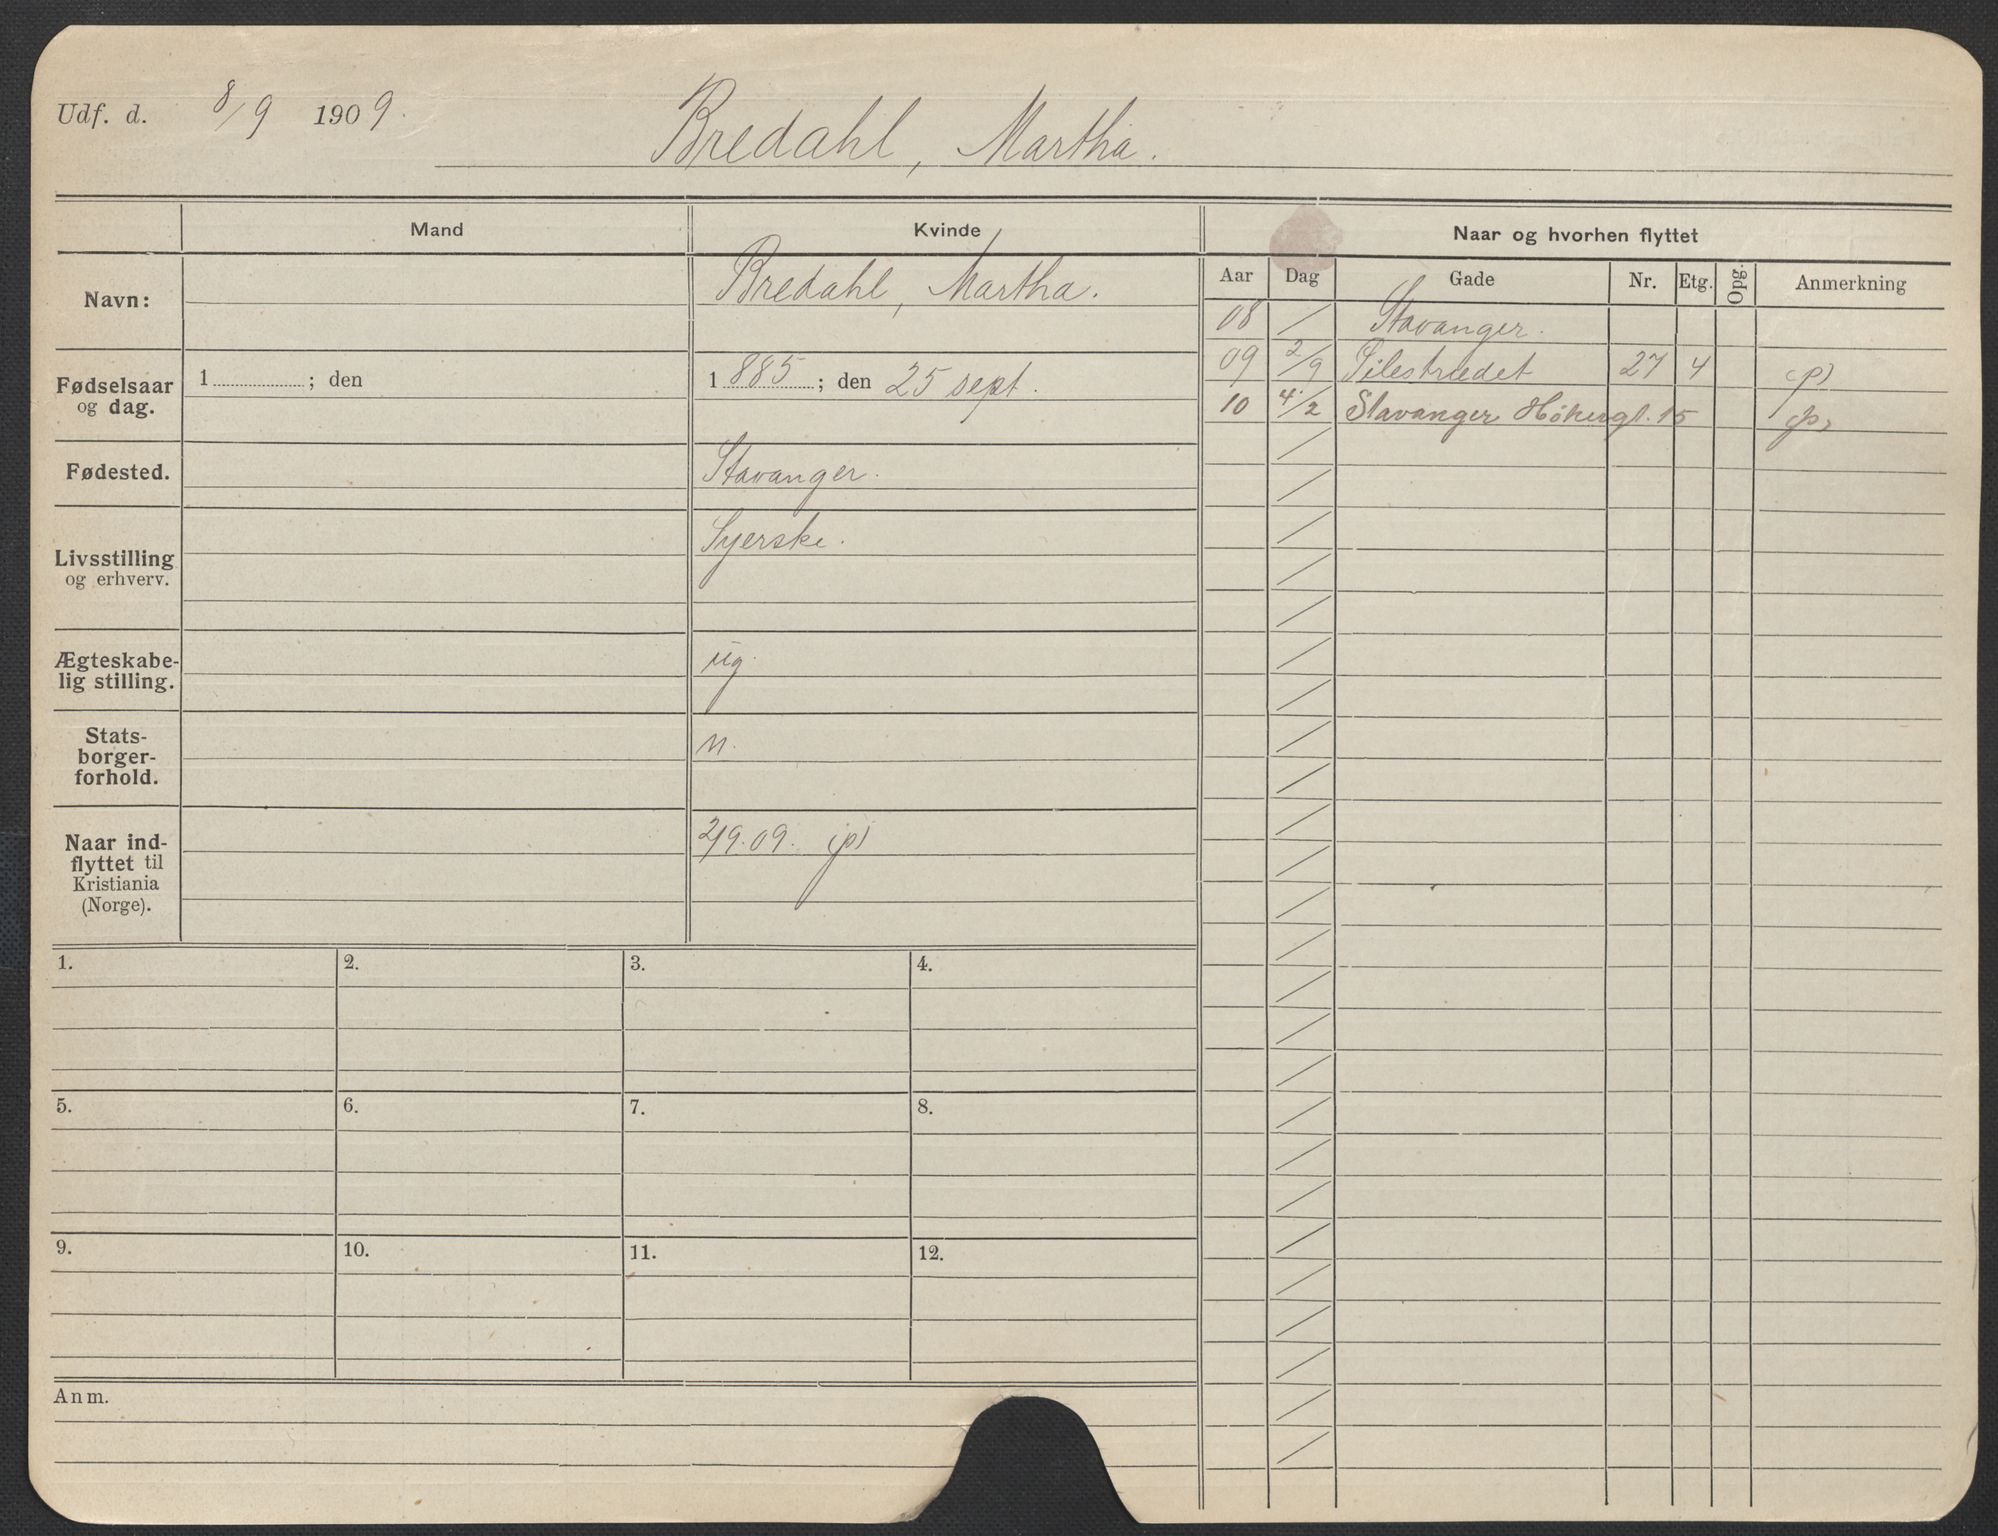 Udf. d. 8/9 1909.
Bredahl, Martha.
Mand
Kvinde
Naar og hvorhen flyttet
Navn:
Bredahl, Martha.
Fødselsaar
og dag.
1 ; den
1 885 ; den 25 sept.
Fødested.
Stavanger.
Livsstilling
og erhverv.
Syerske.
Ægteskabe-
lig stilling.
ug.
Stats-
borger-
forhold.
n.
Naar ind-
flyttet til
Kristiania
(Norge).
2/9.09. (p)
Aar Dag Gade Nr. Etg. Opg. Anmerkning
08 / Stavanger.
09 2/9 Pilestrædet 27 4 (p)
10 4/2 Stavanger Hökergt. 15 (p)
1. 2. 3. 4.
5. 6. 7. 8.
9. 10. 11. 12.
Anm.